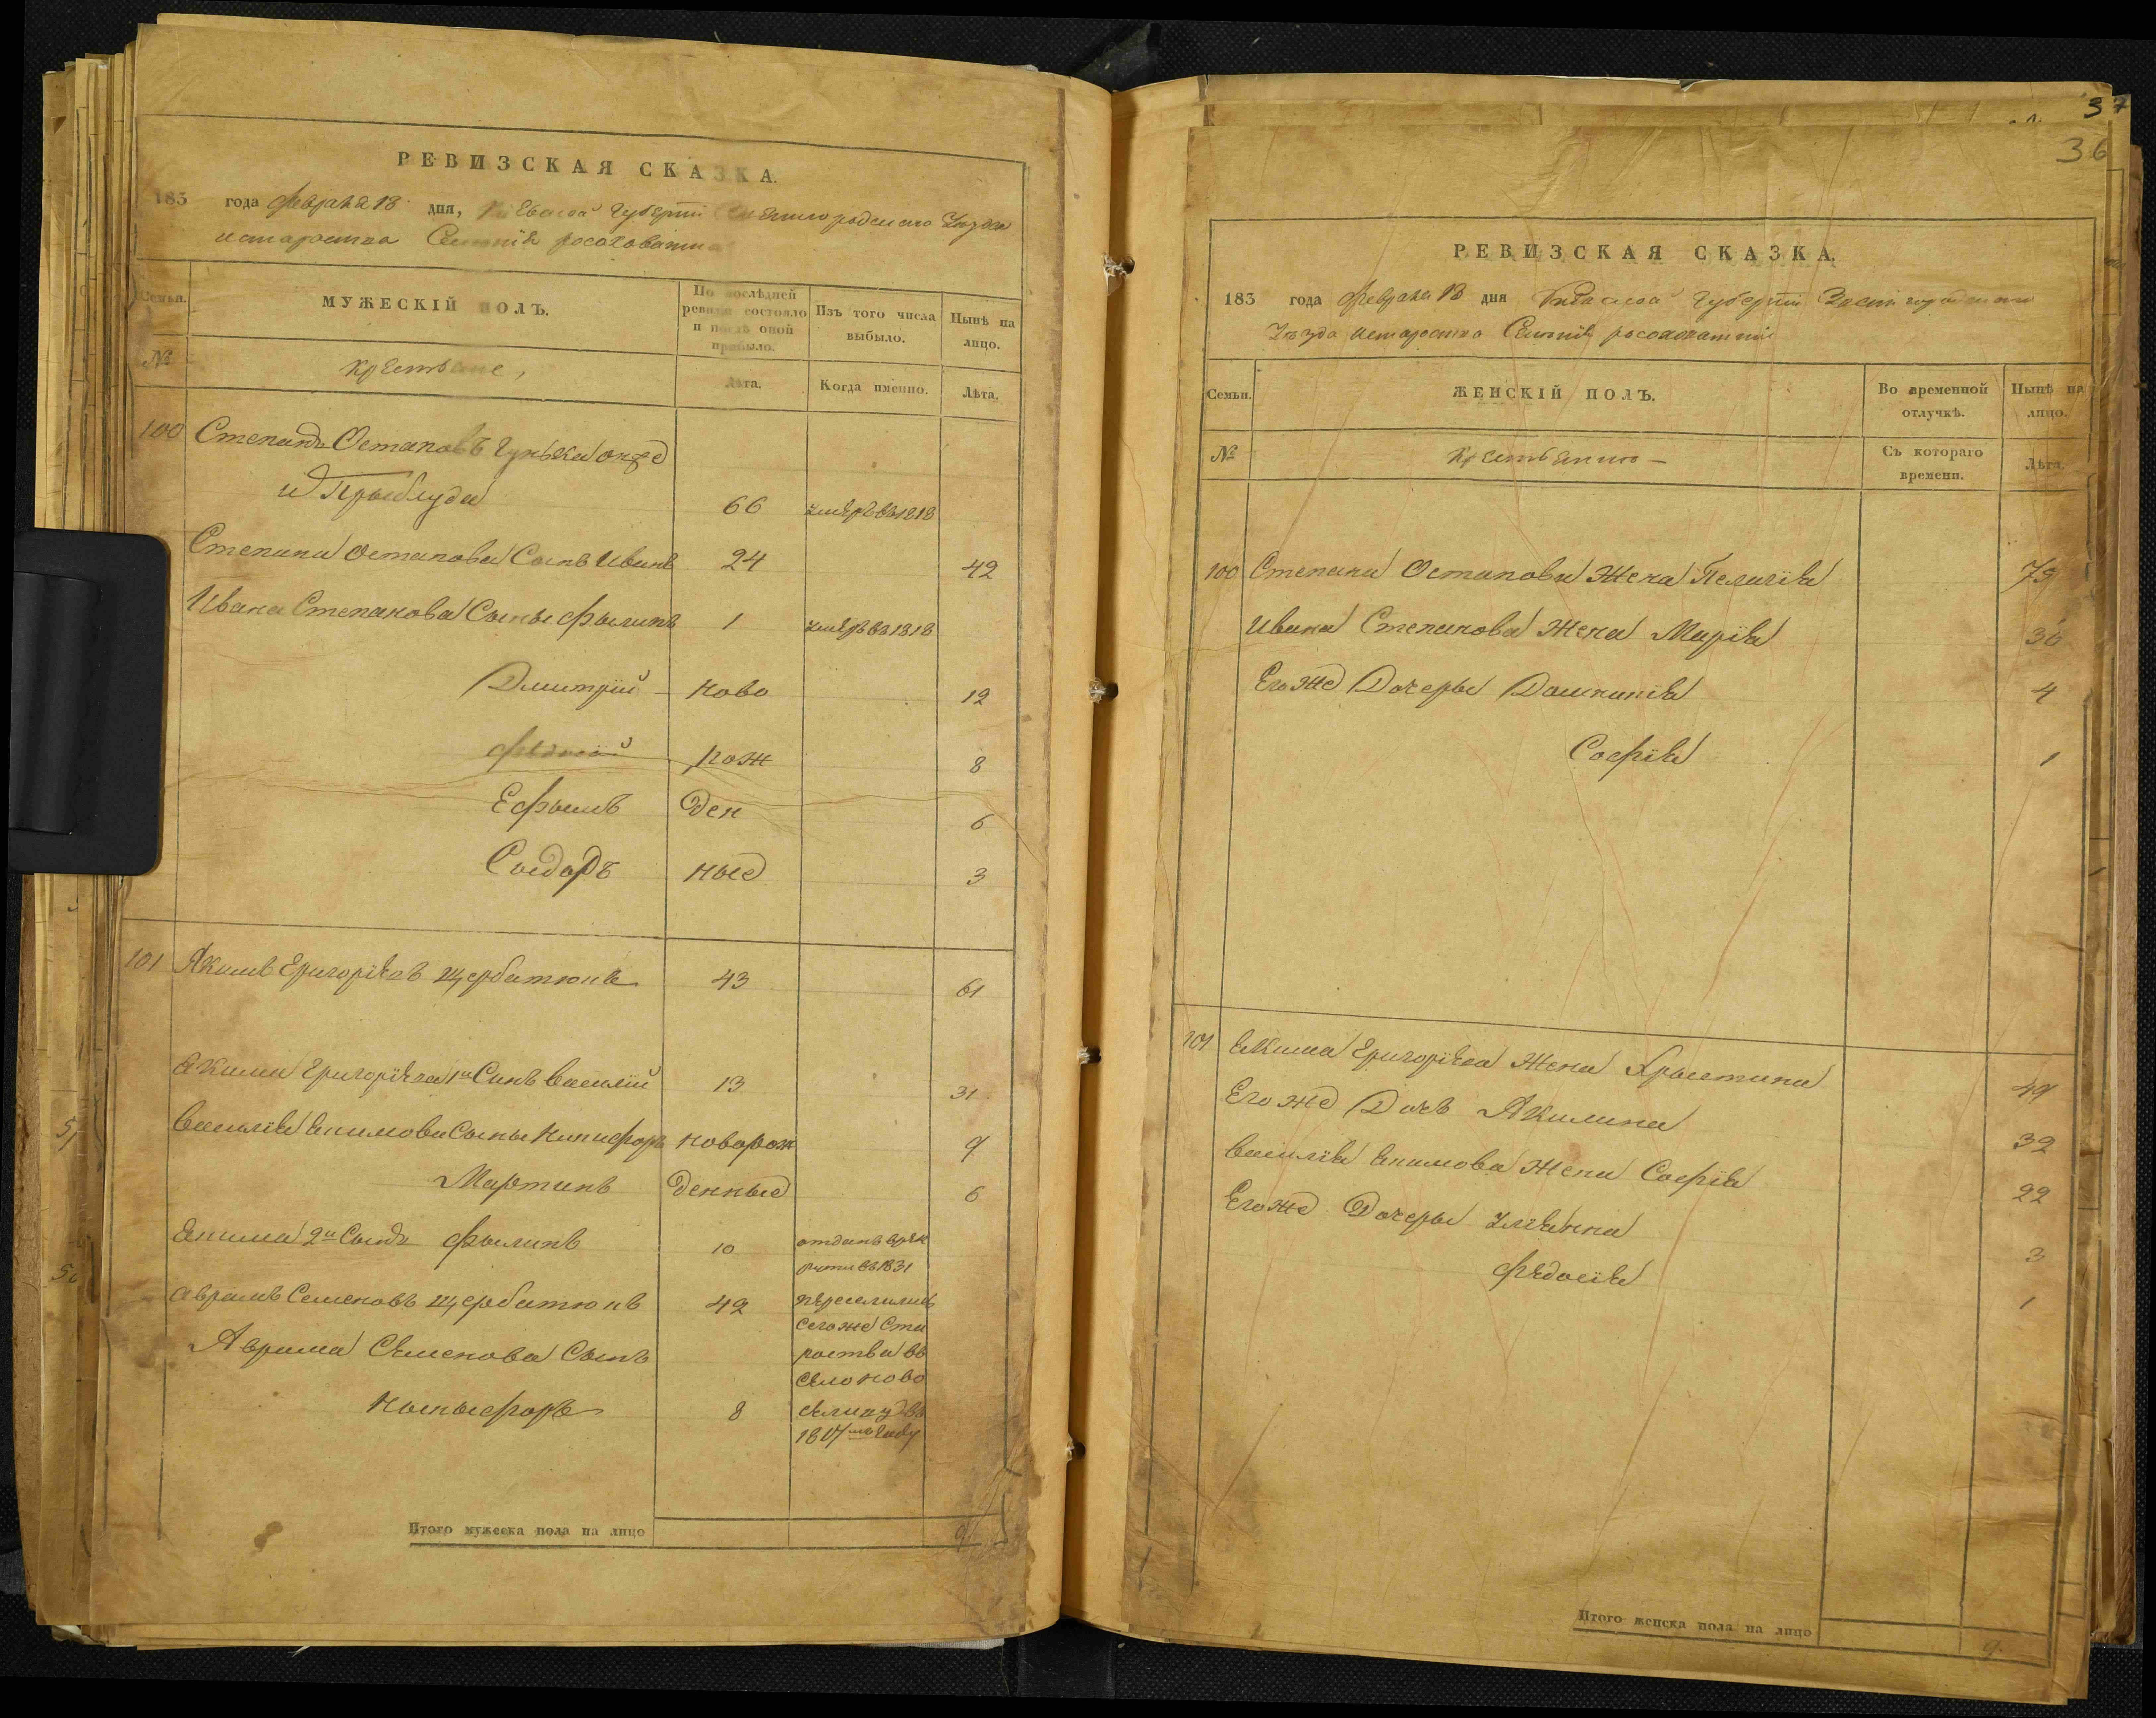 РЕВИЗСКАЯ СКАЗКА.
183 года февраля 18 дня, Киевской Губернїи
истароства
Семьи.
МУЖЕСКІЙ ПОЛЪ.
По послѣдней ревизіи состояло и послѣ оной прибыло.
Изъ того числа выбыло.
Нынѣ на лицо.
№
Крестьяне,
Лѣта.
Когда именно.
Лѣта.
100 Степанъ Остаповъ Гунька онже
и Прыблуда 66 умеръ въ 1818
Степана Остапова Сынъ Иванъ 24 42
Ивана Степанова Сыны Фылипъ 1 умеръ въ 1818
Дмитрїй ново 12
рож 8
Ефымъ ден 6
Сыдоръ ные 3
101 Якимъ Григорїевъ Щербатюкъ 43 61
Якима Григорїева 1й Синъ Василїй 13 31
Василїя Якимова Сыны Никифоръ новорож 9
Мартинъ денные 6
Якима 2й Сынъ Фылипъ 10 отданъ врек
руты въ 1831
Аврамъ Семеновъ Щербатюкъ 42 переселились
сегоже Ста
Аврама Семенова Сынъ роства въ
село ново
Ныкыфоръ 8 селицу въ
1817мъ году
Итого мужеска пола на лицо 9
37
36
РЕВИЗСКАЯ СКАЗКА.
183 года февраля 18 дня Губернїи
Уѣзда истароства
Семьи.
ЖЕНСКІЙ ПОЛЪ.
Во временной отлучкѣ.
Нынѣ на лицо.
№
Съ котораго времени.
Лѣта.
100 Степана Остапова Жена Пелагїя
Ивана Степанова Жена Марїя 36
Егоже Дочеры Домникїя 4
Софїя 1
101 Якима Григорїева Жена Хрыстина 49
Егоже Дочь Якилина 32
Василїя Якимова Жена Софїя 22
Егоже Дочеры Улїянна 3
Федосїя 1
Итого женска пола на лицо 9